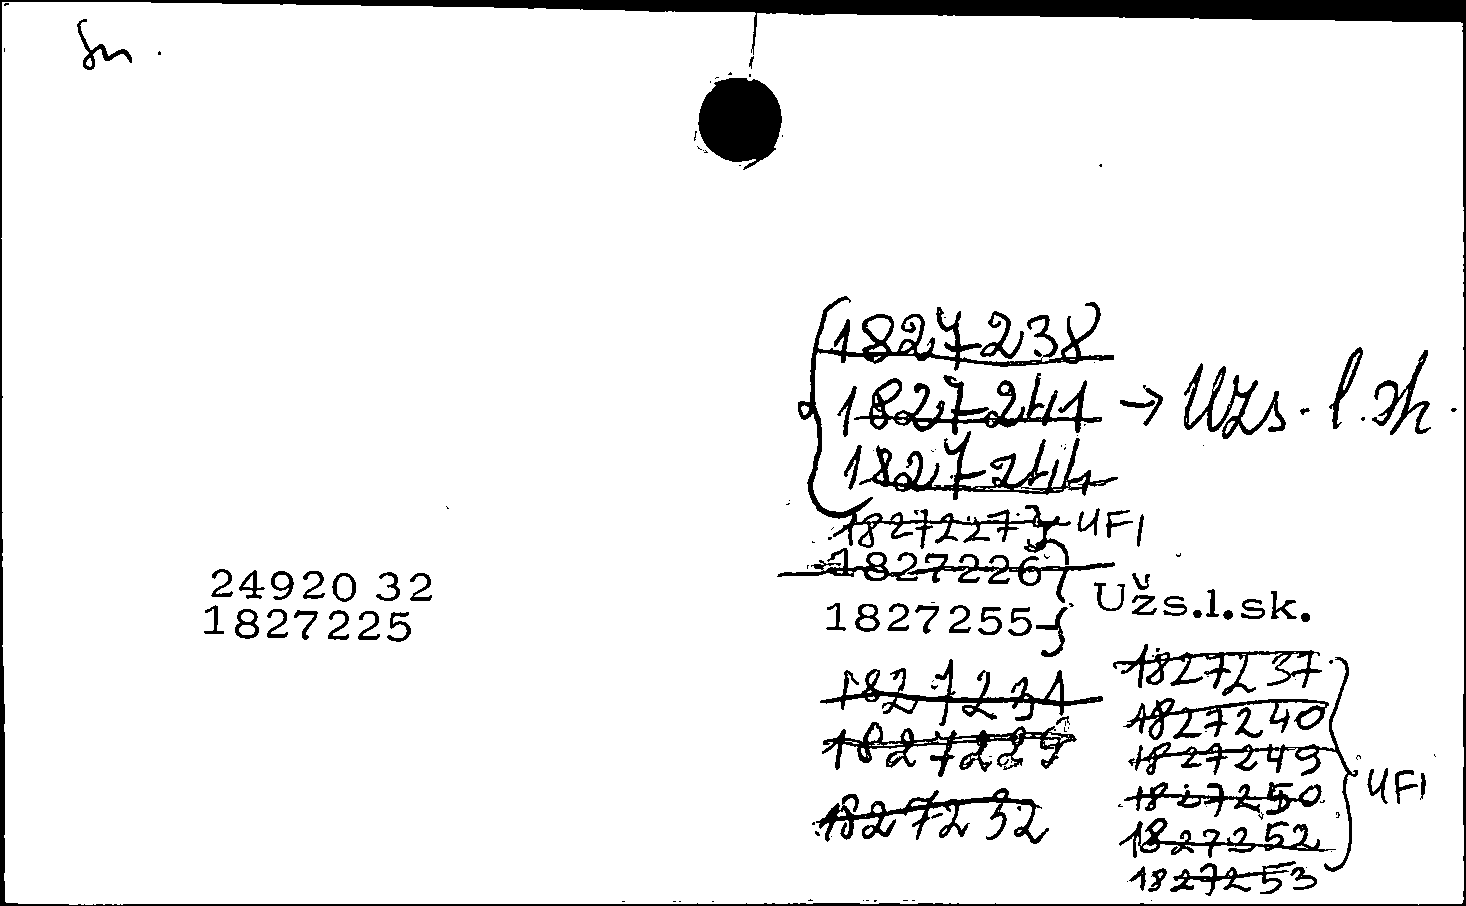 Sn.
1827238
1827241 → Užs. l. sk.
1827244
1827227 } UFI
1827226
1827255 } Užs.l.sk.
24920 32
1827225
1827231
1827229
1827232
1827237
1827240
1827249
1827250 } UFI
1827252
1827253